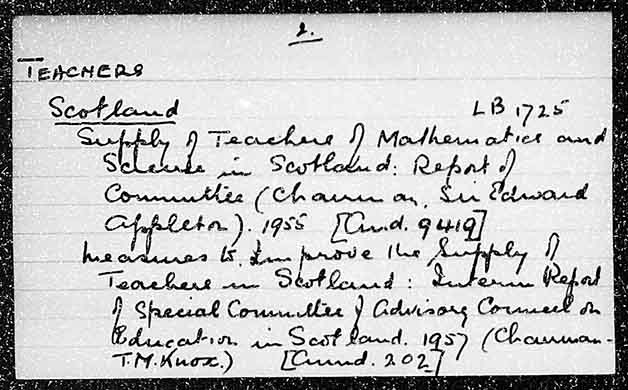 2.
TEACHERS
Scotland LB 1725
Supply of Teachers of Mathematics and
Science in Scotland: Report of
Committee (Chairman, Sir Edward
Appleton). 1955 [Cmd. 9419]
Measures to Improve the Supply of
Teachers in Scotland: Interim Report
of Special Committee of Advisory Council on
Education in Scotland. 1957 (Chairman -
T.M. Knox.) [Cmnd. 202]